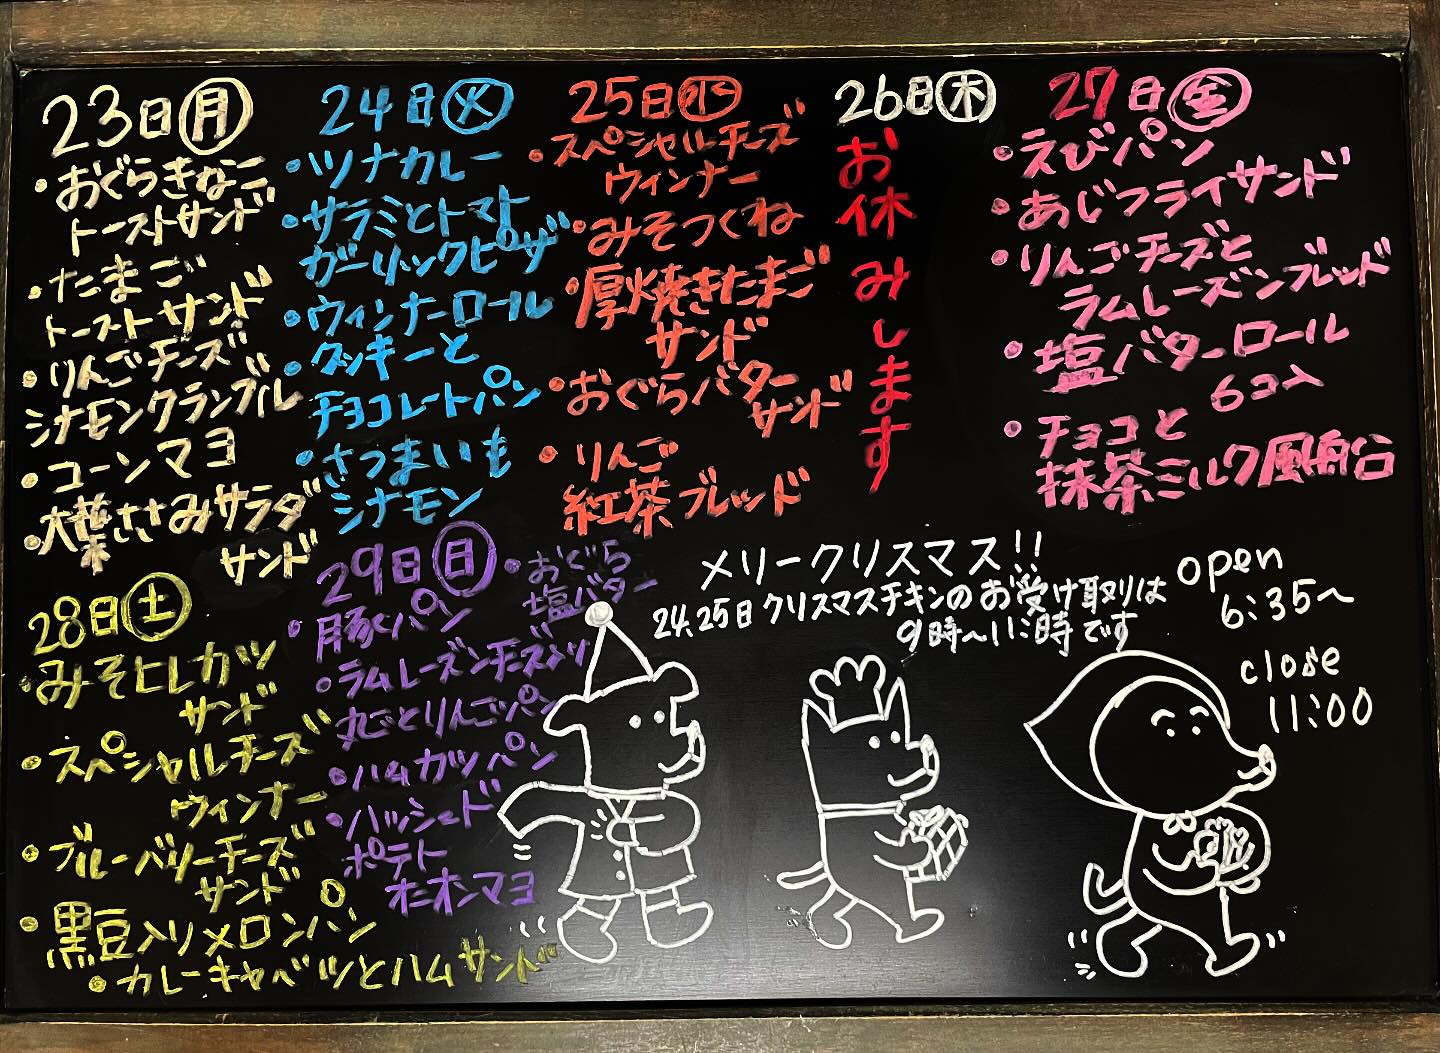 23日㊊
・おぐらきなこ
トーストサンド
・たまご
トーストサンド
・りんごチーズ
シナモンクランブル
・コーンマヨ
・大葉ささみサラダ
サンド
24日㊋
・ツナカレー
・サラミとトマト
ガーリックピザ
・ウィンナーロール
・クッキーと
チョコレートパン
・さつまいも
シナモン
25日㊌
・スペシャルチーズ
ウィンナー
・みそつくね
・厚焼きたまご
サンド
・おぐらバター
サンド
・りんご
紅茶ブレッド
26日㊍
お休みします
27日㊎
・えびパン
・あじフライサンド
・りんごチーズと
ラムレーズンブレッド
・塩バターロール
6コ入
・チョコと
抹茶ミルク風船
28日㊏
・みそヒレカツ
サンド
・スペシャルチーズ
ウィンナー
・ブルーベリーチーズ
サンド
・黒豆入りメロンパン
・カレーキャベツとハムサンド
29日㊐
・おぐら
塩バター
・豚パン
・ラムレーズンチーズ
丸ごとりんごパン
・ハムカツパン
・ハッシュド
ポテト
オニオンマヨ
メリークリスマス!!
24.25日クリスマスチキンのお受け取りは
9時～11時です
open
6:35～
close
11:00